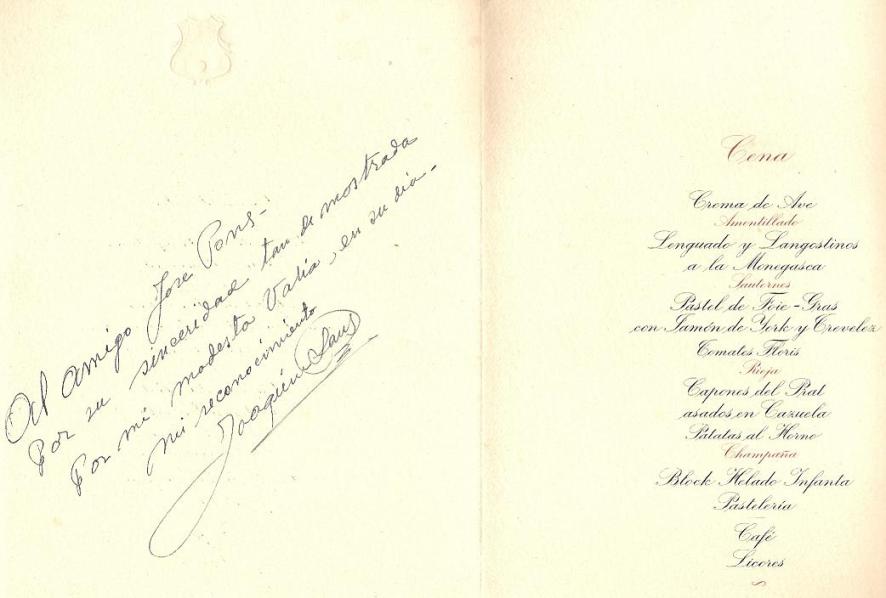 Al amigo Jose Pons-
Por su sinceridad tan demostrada
Por mi modesta Valia, en su dia-
mi reconocimiento
Joaquin
Cena
Crema de Ave
Amontillado
Lenguado y Langostinos
a la Monegasca
Sauternes
Pastel de Foie-Gras
con Jamón de York y Trevelez
Tomates Floris
Rioja
Capones del Prat
asados en Cazuela
Patatas al Horno
Champaña
Block Helado Infanta
Pastelería
Café
Licores